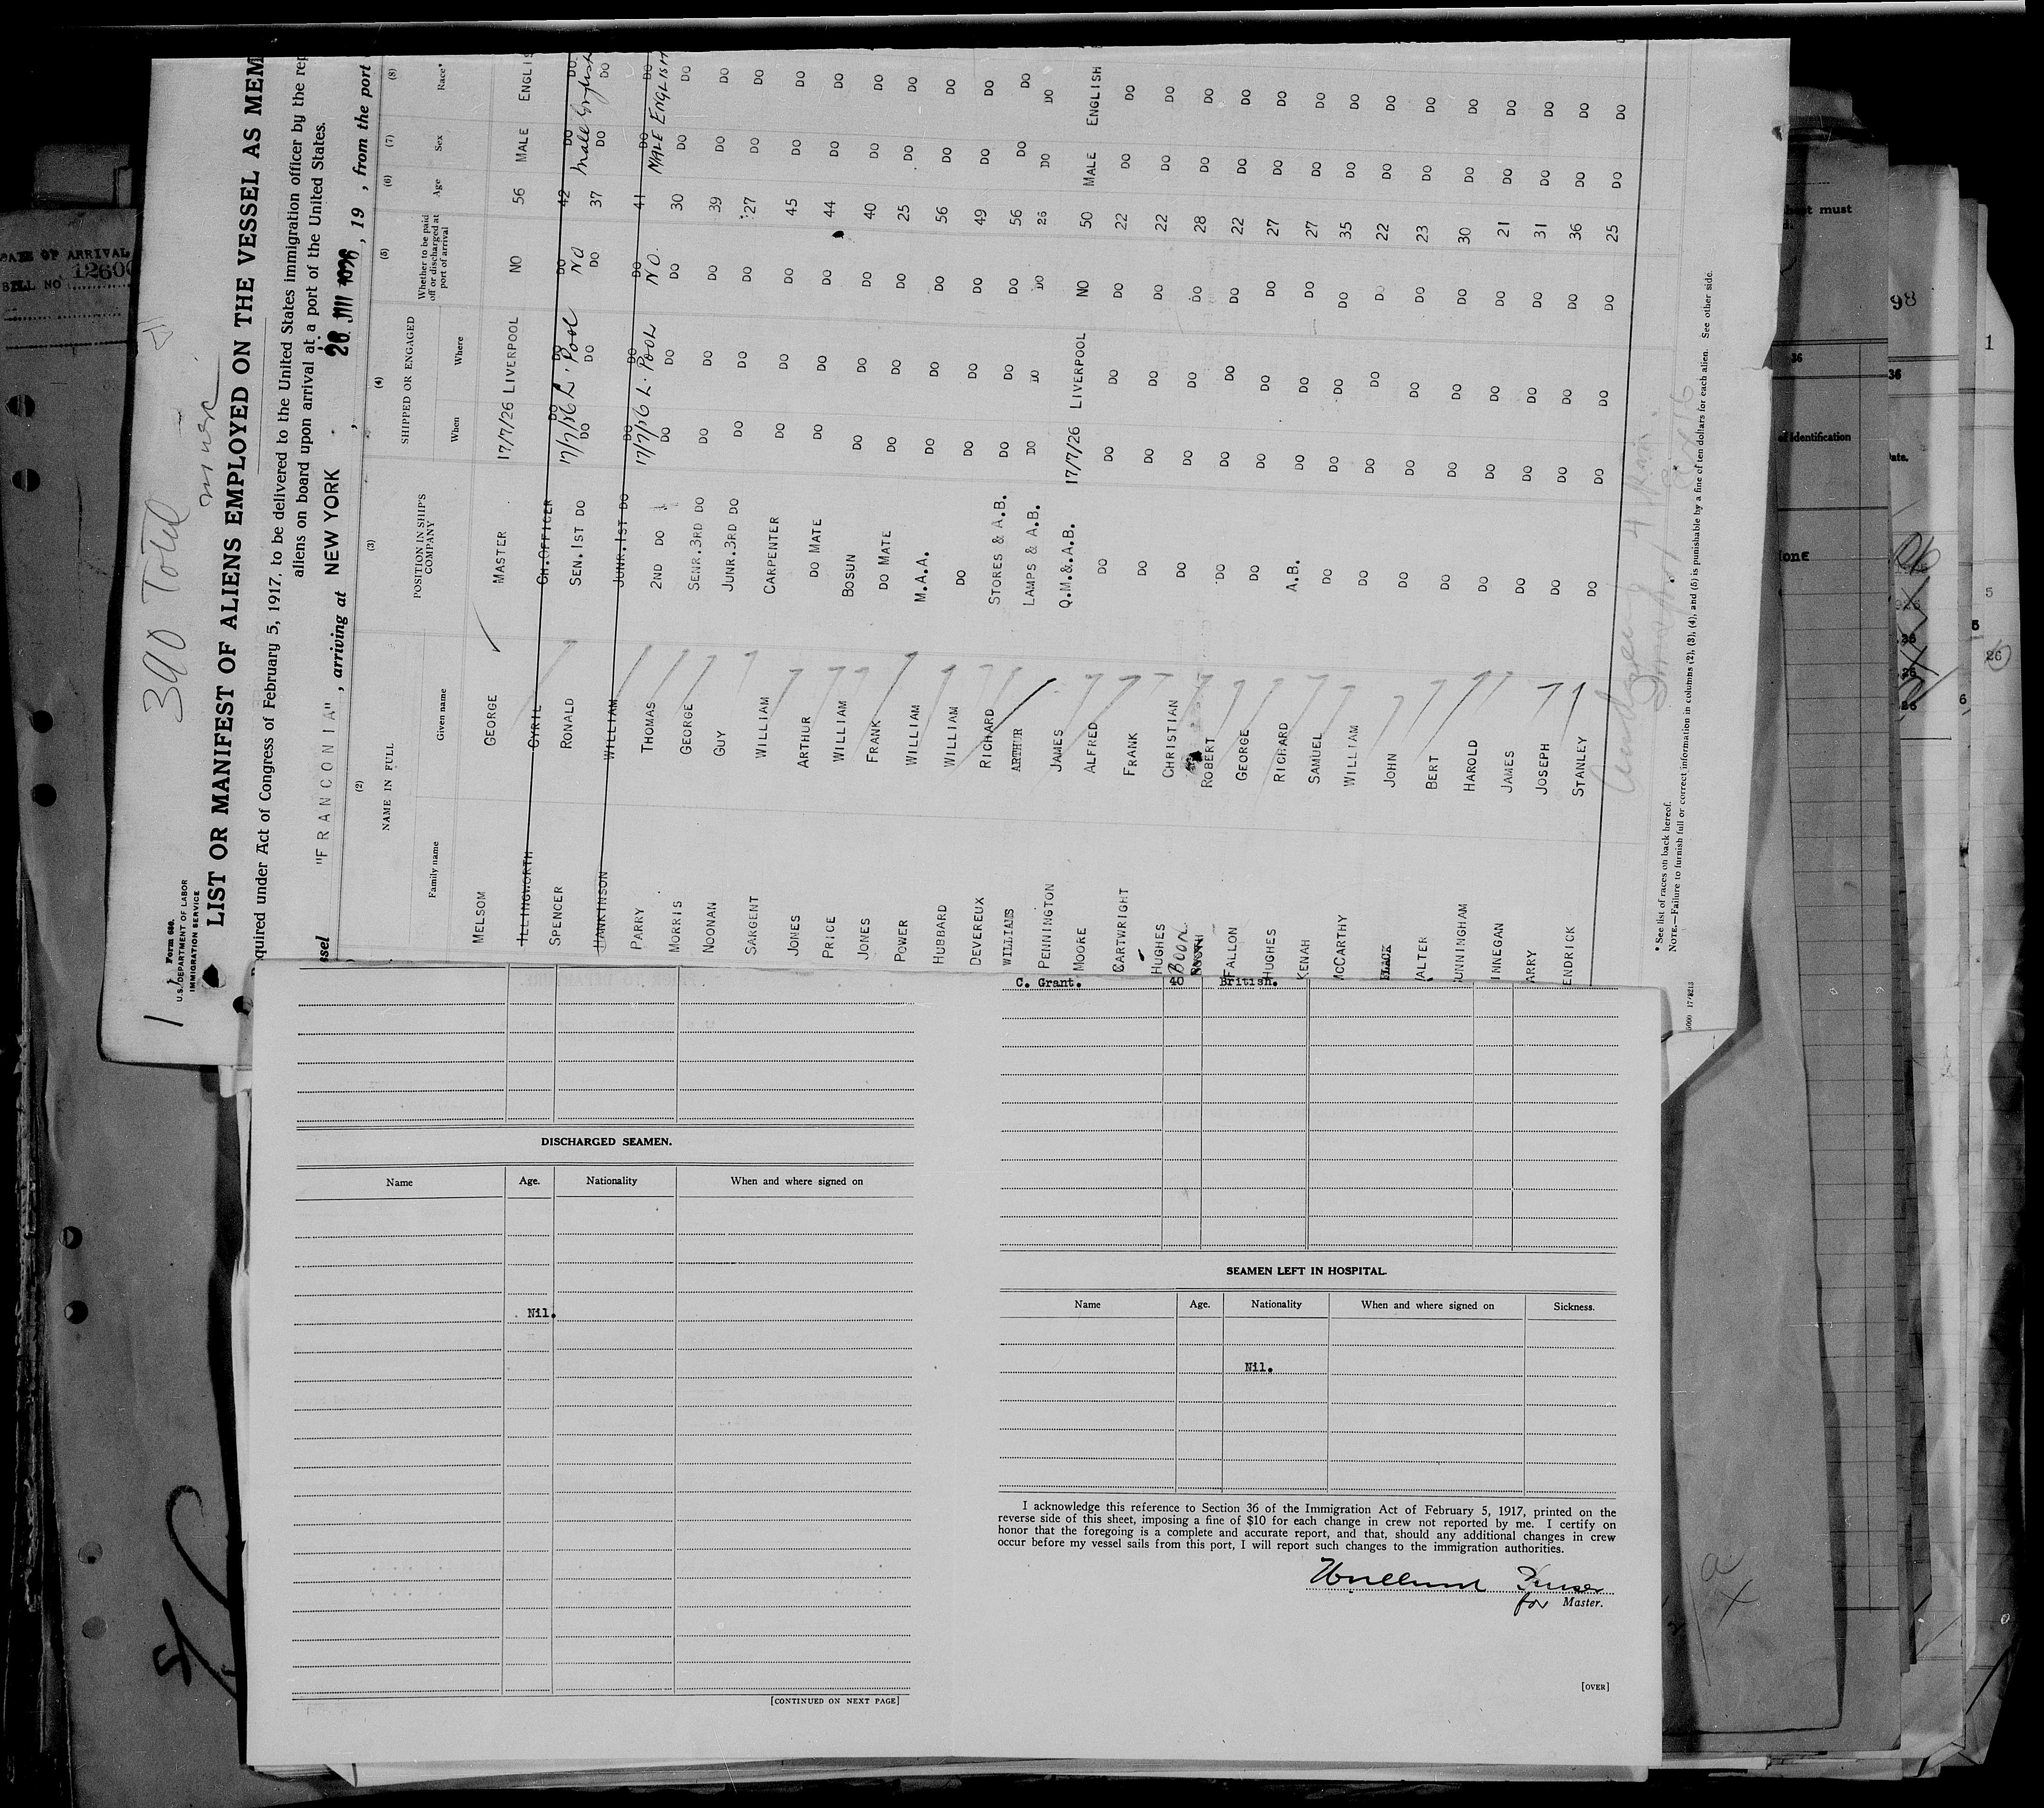 390 Total
Form 680.
U.S. DEPARTMENT OF LABOR
IMMIGRATION SERVICE
LIST OR MANIFEST OF ALIENS EMPLOYED ON THE VESSEL AS MEM
equired under Act of Congress of February 5, 1917, to be delivered to the United States immigration officer by the rep
aliens on board upon arrival at a port of the United States.
ssel "FRANCONIA", arriving at NEW YORK, 26 1926, 19 , from the port
(2) (3) (4) (5) (6) (7) (8)
NAME IN FULL POSITION IN SHIP'S COMPANY SHIPPED OR ENGAGED Whether to be paid off or discharged at port of arrival Age Sex Race*
Family name Given name When Where
MELSOM GEORGE MASTER 17/7/26 LIVERPOOL NO 56 MALE ENGLIS
ILLINGWORTH CYRIL CH.OFFICER DO DO DO 42 DO DO
SPENCER RONALD SEN.1ST DO 17/7/26 L.Pool NO 37 Male English
DO DO DO DO DO
HANKINSON WILLIAM JUNR.1ST DO DO DO DO 41 DO DO
PARRY THOMAS 2ND DO 17/7/26 L.POOL NO. 30 MALE ENGLISH
DO DO DO DO DO
MORRIS GEORGE SENR.3RD DO DO DO DO 39 DO DO
NOONAN GUY JUNR.3RD DO DO DO DO 27 DO DO
SARGENT WILLIAM CARPENTER DO DO DO 45 DO DO
JONES ARTHUR DO MATE DO DO DO 44 DO DO
PRICE WILLIAM BOSUN DO DO DO 40 DO DO
JONES FRANK DO MATE DO DO DO 25 DO DO
POWER WILLIAM M.A.A. DO DO DO 56 DO DO
HUBBARD WILLIAM DO DO DO DO 49 DO DO
DEVEREUX RICHARD STORES & A.B. DO DO DO 56 DO DO
WILLIAMS ARTHUR LAMPS & A.B. DO DO DO 26 DO DO
PENNINGTON JAMES Q.M.&.A.B. 17/7/26 LIVERPOOL NO 50 MALE ENGLISH
MOORE ALFRED DO DO DO DO 22 DO DO
CARTWRIGHT FRANK DO DO DO DO 22 DO DO
HUGHES CHRISTIAN DO DO DO DO 28 DO DO
BOON ROBERT DO DO DO DO 22 DO DO
FALLON GEORGE DO DO DO DO 27 DO DO
HUGHES RICHARD A.B. DO DO DO 27 DO DO
KENAH SAMUEL DO DO DO DO 35 DO DO
MCCARTHY WILLIAM DO DO DO DO 22 DO DO
BLACK JOHN DO DO DO DO 23 DO DO
ALTER BERT DO DO DO DO 30 DO DO
UNNINGHAM HAROLD DO DO DO DO 21 DO DO
INNEGAN JAMES DO DO DO DO 31 DO DO
ARRY JOSEPH DO DO DO DO 36 DO DO
ENDRICK STANLEY DO DO DO DO 25 DO DO
* See list of races on back hereof.
NOTE.—Failure to furnish full or correct information in columns (2), (3), (4), and (5) is punishable by a fine of ten dollars for each alien. See other side.
DATE OF ARRIVAL
12600
BILL NO
of Identification
98
DISCHARGED SEAMEN.
Name Age. Nationality When and where signed on
Nil.
[CONTINUED ON NEXT PAGE]
C. Grant. 40 British.
SEAMEN LEFT IN HOSPITAL.
Name Age. Nationality When and where signed on Sickness.
Nil.
I acknowledge this reference to Section 36 of the Immigration Act of February 5, 1917, printed on the
reverse side of this sheet, imposing a fine of $10 for each change in crew not reported by me. I certify on
honor that the foregoing is a complete and accurate report, and that, should any additional changes in crew
occur before my vessel sails from this port, I will report such changes to the immigration authorities.
for Master.
[OVER]